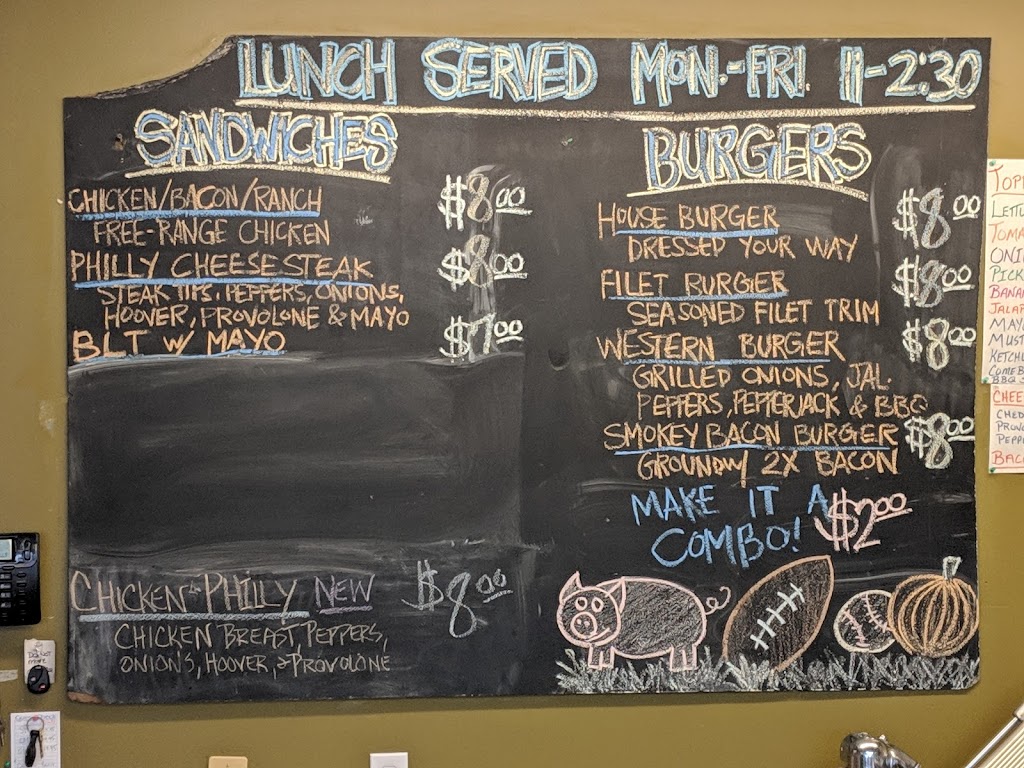 LUNCH SERVED MON.-FRI. 11-2:30
SANDWICHES
CHICKEN/BACON/RANCH $8.00
FREE-RANGE CHICKEN
PHILLY CHEESESTEAK $8.00
STEAK TIPS, PEPPERS, ONIONS,
HOOVER, PROVOLONE & MAYO
BLT W/ MAYO $7.00
CHICKEN PHILLY NEW $8.00
CHICKEN BREAST PEPPERS,
ONIONS, HOOVER, & PROVOLONE
BURGERS
HOUSE BURGER $8.00
DRESSED YOUR WAY
FILET BURGER $8.00
SEASONED FILET TRIM
WESTERN BURGER $8.00
GRILLED ONIONS, JAL.
PEPPERS, PEPPERJACK & BBQ
SMOKEY BACON BURGER $8.00
GROUND W/ 2X BACON
MAKE IT A
COMBO! $2.00
TOPP
LETTU
TOMA
ONI
PICK
BANA
JALAP
MAY
MUST
KETCHU
COMEB
BBQ
CHEE
CHED
PROVO
PEPPE
BACO